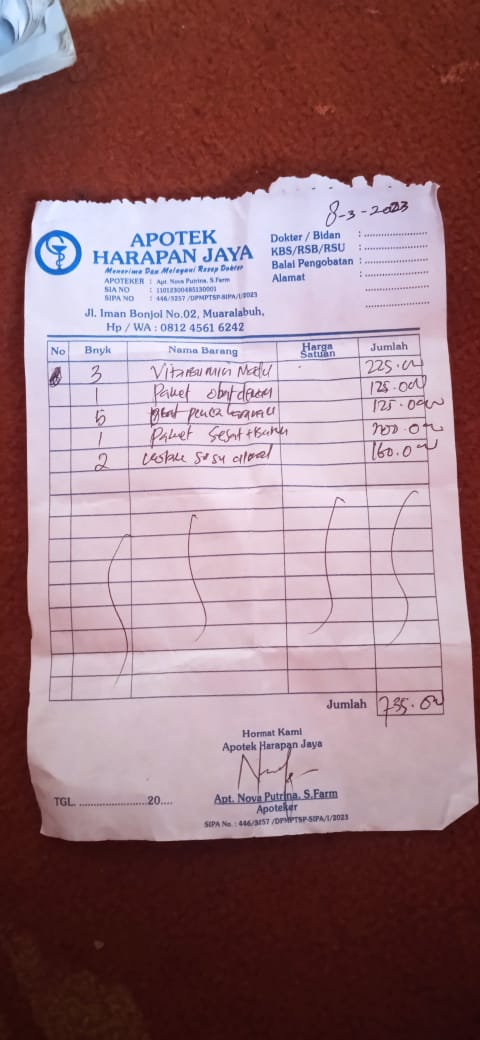 8-3-2023
APOTEK
HARAPAN JAYA
Menerima Dan Melayani Resep Dokter
APOTEKER : Apt. Nova Putrina, S.Farm
SIA NO : 11012300485130001
SIPA NO : 446/3257 /DPMPTSP-SIPA/I/2023
Jl. Iman Bonjol No.02, Muaralabuh,
Hp / WA : 0812 4561 6242
Dokter / Bidan : ....................
KBS/RSB/RSU : ....................
Balai Pengobatan : ....................
Alamat : ....................
....................
....................
No Bnyk Nama Barang Harga Satuan Jumlah
3 Vitamin 225.00
1 Paket obat 125.000
5 125.000
1 Paket 200.000
2 susu 160.000
Jumlah 735.00
Hormat Kami
Apotek Harapan Jaya
TGL. ........................20....
Apt. Nova Putrina. S.Farm
Apoteker
SIPA No. : 446/3157 /DPMPTSP-SIPA/I/2023